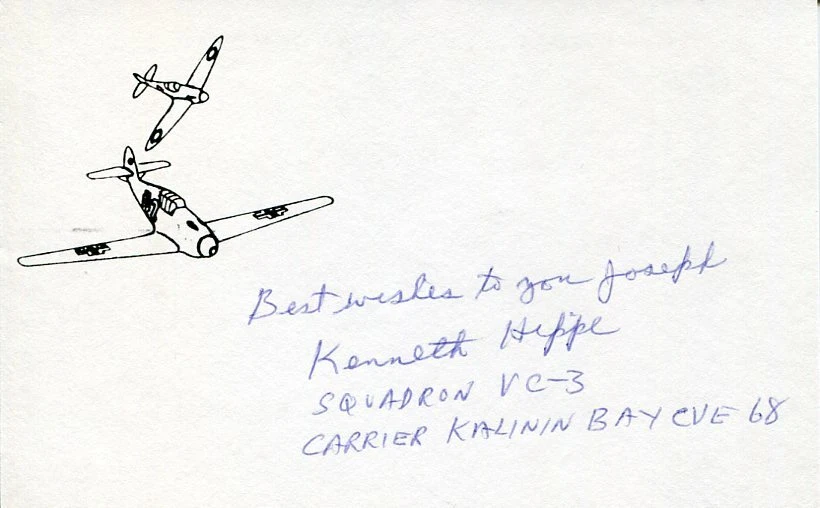 Best wishes to you Joseph
Kenneth Hippe
SQUADRON VC-3
CARRIER KALININ BAY CVE 68